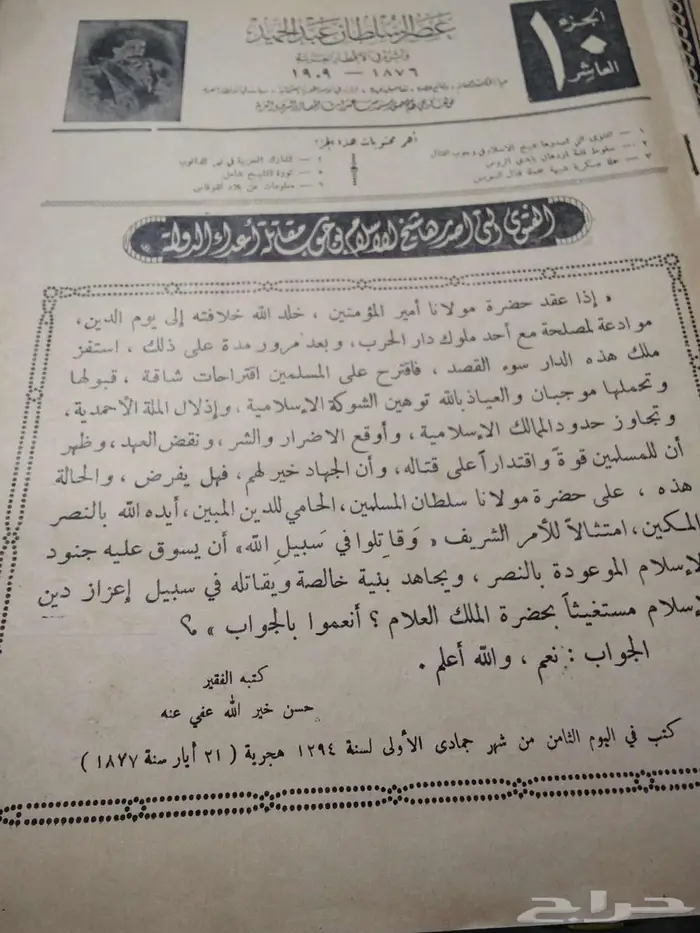 الجزء
١٠
العاشر
عصر السلطان عبد الحميد
وأثره في الأقطار العربية
١٨٧٦ — ١٩٠٩
أهم محتويات هذا الجزء
١ — الفتوى التي أصدرها شيخ الاسلام في وجوب القتال
٢ — سقوط قلعة اردهان بأيدي الروس
٣ —
٤ — المعارك الحربية في نهر الدانوب
٥ — ثورة الشيخ شامل
٦ — معلومات عن بلاد القوقاس
الفتوى التي أصدرها شيخ الاسلام بوجوب مقاتلة أعداء الدولة
« إذا عقد حضرة مولانا أمير المؤمنين ، خلد الله خلافته إلى يوم الدين،
موادعة لمصلحة مع أحد ملوك دار الحرب، وبعد مرور مدة على ذلك ، استفز
ملك هذه الدار سوء القصد ، فاقترح على المسلمين اقتراحات شاقة ، قبولها
وتحملها موجبان والعياذ بالله توهين الشوكة الإسلامية ، وإذلال الملة الأحمدية ،
وتجاوز حدود الممالك الإسلامية ، وأوقع الاضرار والشر ، ونقض العهد ، وظهر
أن للمسلمين قوة واقتداراً على قتاله ، وأن الجهاد خير لهم ، فهل يفرض ، والحالة
هذه ، على حضرة مولانا سلطان المسلمين ، الحامي للدين المبين ، أيده الله بالنصر
المكين ، امتثالاً للأمر الشريف « وَقاتِلوا في سَبيلِ الله » أن يسوق عليه جنود
الإسلام الموعودة بالنصر ، ويجاهد بنية خالصة ويقاتله في سبيل إعزاز دين
الإسلام مستغيثاً بحضرة الملك العلام ؟ أنعموا بالجواب » ؟
الجواب : نعم ، والله أعلم .
كتبه الفقير
حسن خير الله عفي عنه
كتب في اليوم الثامن من شهر جمادى الأولى لسنة ١٢٩٤ هجرية ( ٢١ أيار سنة ١٨٧٧ )
حراج